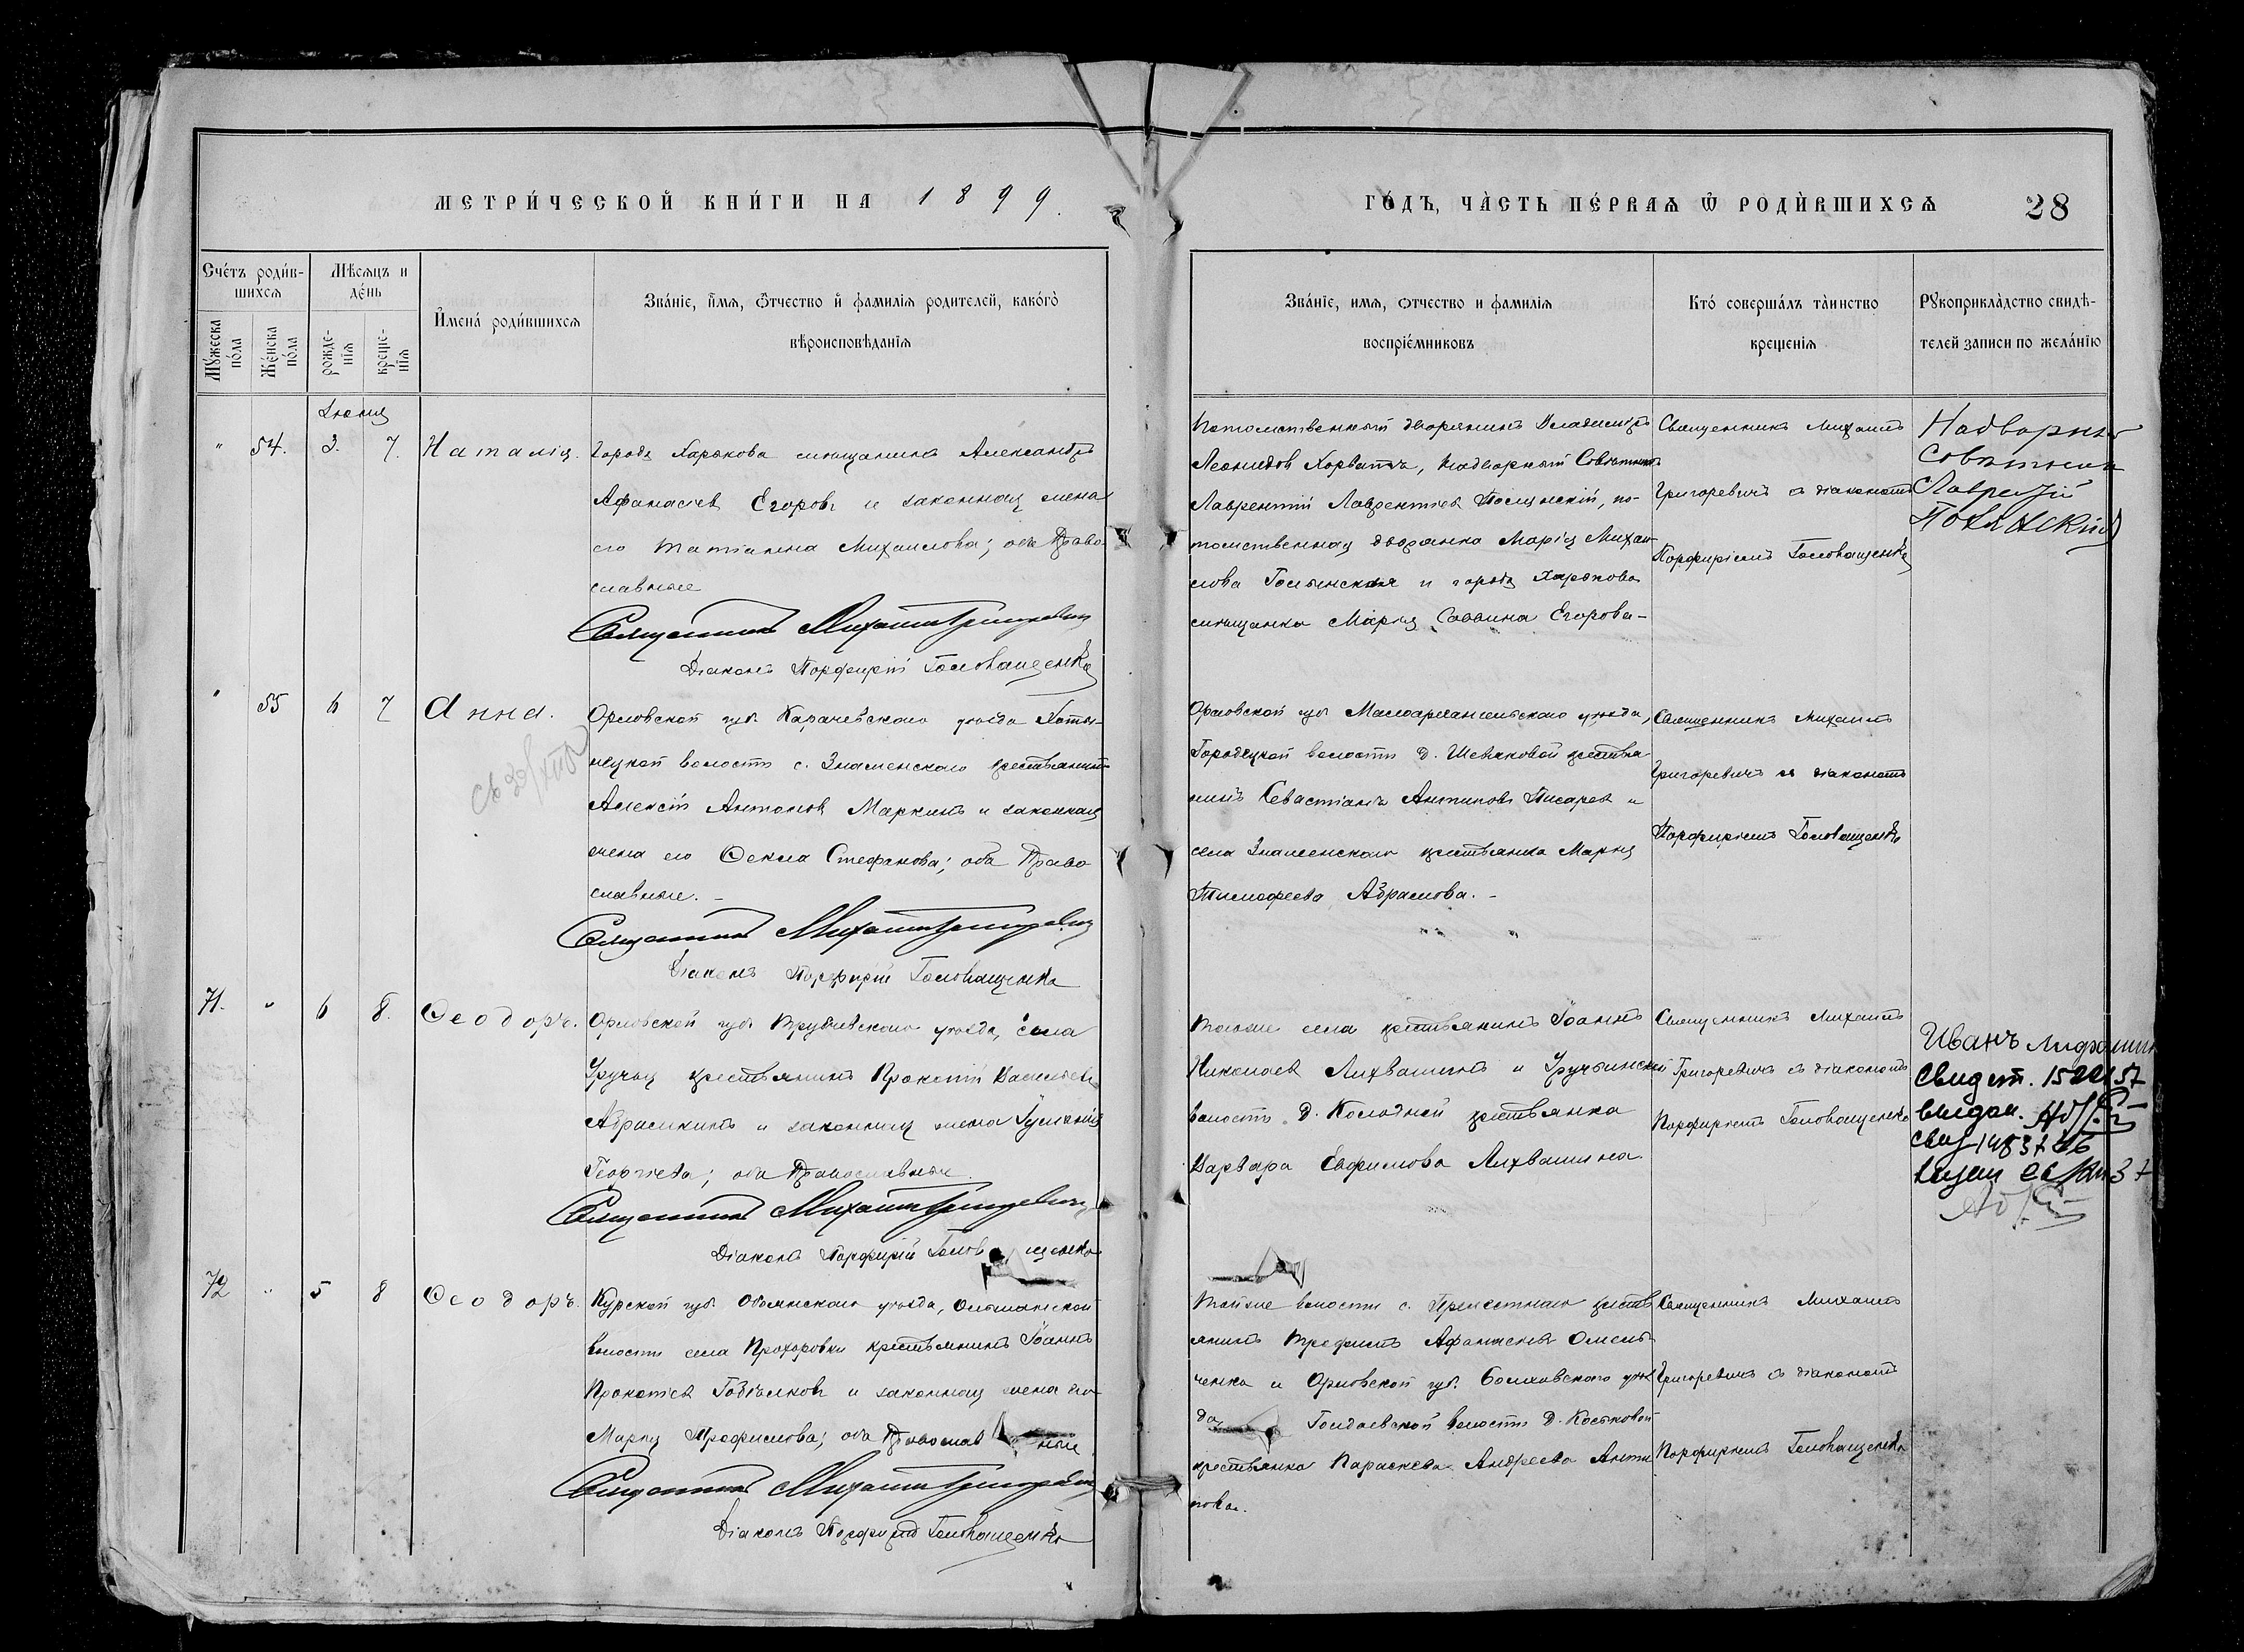 МЕТРИ́ЧЕСКОЙ КНИ́ГИ НА 1899.
ГО́ДЪ, ЧА̀СТЬ ПЕ́РВАЯ Ѿ РОДИ́ВШИХСЯ 28
Сче́тъ роди́в-
шихся
Мѣсяцъ и
де́нь
И҆мена́ роди́вшихся
Зва́нїе, и҆́мя, ѻ҆́тчество и҆ фамилїя родителей, како́гѡ
вѣроисповѣданїя
Му́жеска
по́ла
Же́нска
по́ла
рожде-
нїя
креще-
нїя
Зва́нїе, имя, отчество и фамилїя
воспрїе́мниковъ
Кто́ соверша́лъ та̀инство
креще́нїя
Рꙋкоприкла̀дство свидѣ-
телей записи по жела́нїю
Іюня
" 54. 3. 7. Наталія.
Города Харькова мѣщанинъ Александръ
Афанасіев Егоровъ и законная жена
его Татіанна Михаилова; оба Право-
славные
Священникъ Михаилъ Григоревичъ
Діаконъ Порфирій Головащенко
Потомственный дворянинъ Владиміръ
Леонидов Хорватъ, Надворный Совѣтникъ
Лаврентій Лаврентіев Полянскій, по-
томственная дворянка Марія Михаи-
лова Голынская и города Харькова
мѣщанка Марія Саввина Егорова-
Священникъ Михаилъ
Григоревичъ съ діакономъ
Порфиріемъ Головащенко
Надворный
Совѣтникъ
Лаврентій
Полянскій
" 55 6 7 Анна.
Орловской губ. Карачевскаго уѣзда Хоты-
нецкой волости с. Знаменскаго крестьянинъ
Алексій Антонов Маркинъ и законная
жена его Ѳекла Стефанова; оба Право
славные. -
Священникъ Михаилъ Григоревичъ
Діаконъ Порфирій Головащенко
Орловской губ. Малоархангельскаго уѣзда,
Городецкой волости д. Шевяковой крестья-
нинъ Севастіанъ Антиповъ Писарев и
села Знаменскаго крестьянка Марія
Тимофеева Абрамова. -
Священникъ Михаилъ
Григоревичъ съ діакономъ
Порфиріемъ Головащенко
71. " 6 8. Ѳеодоръ.
Орловской губ. Трубчевскаго уѣзда, села
Уручья крестьянинъ Прокопій Васильев
Абрамкинъ и законная жена
Георгіева; оба Православные
Священникъ Михаилъ Григоревичъ
Діаконъ Порфирій Головащенко
Тогоже села крестьянинъ Іоаннъ
Николаев Лихвашинъ и Уручьинской
волости д. Колодной крестьянка
Варвара Евфимова Лихвашина
Священникъ Михаилъ
Григоревичъ съ діакономъ
Порфиріемъ Головащенко
Иванъ
Свидет.
выдан.
72 " 5 8 Ѳеодоръ.
Курской губ. Обоянскаго уѣзда, Ольшанской
волости села Прохоровки крестьянинъ Іоаннъ
Прокопіев и законная жена его
Марія Трофимова; оба Православные
Священникъ Михаилъ Григоревичъ
Діаконъ Порфирій Головащенко
Тойже волости с. крестья-
янинъ Афанасіев Омель-
ченко и Орловской губ. Болховскаго уѣз-
да, волости д. Костковой
крестьянка Параскева Андреева Анти
пова.
Священникъ Михаилъ
Григоревичъ съ діакономъ
Порфиріемъ Головащенко